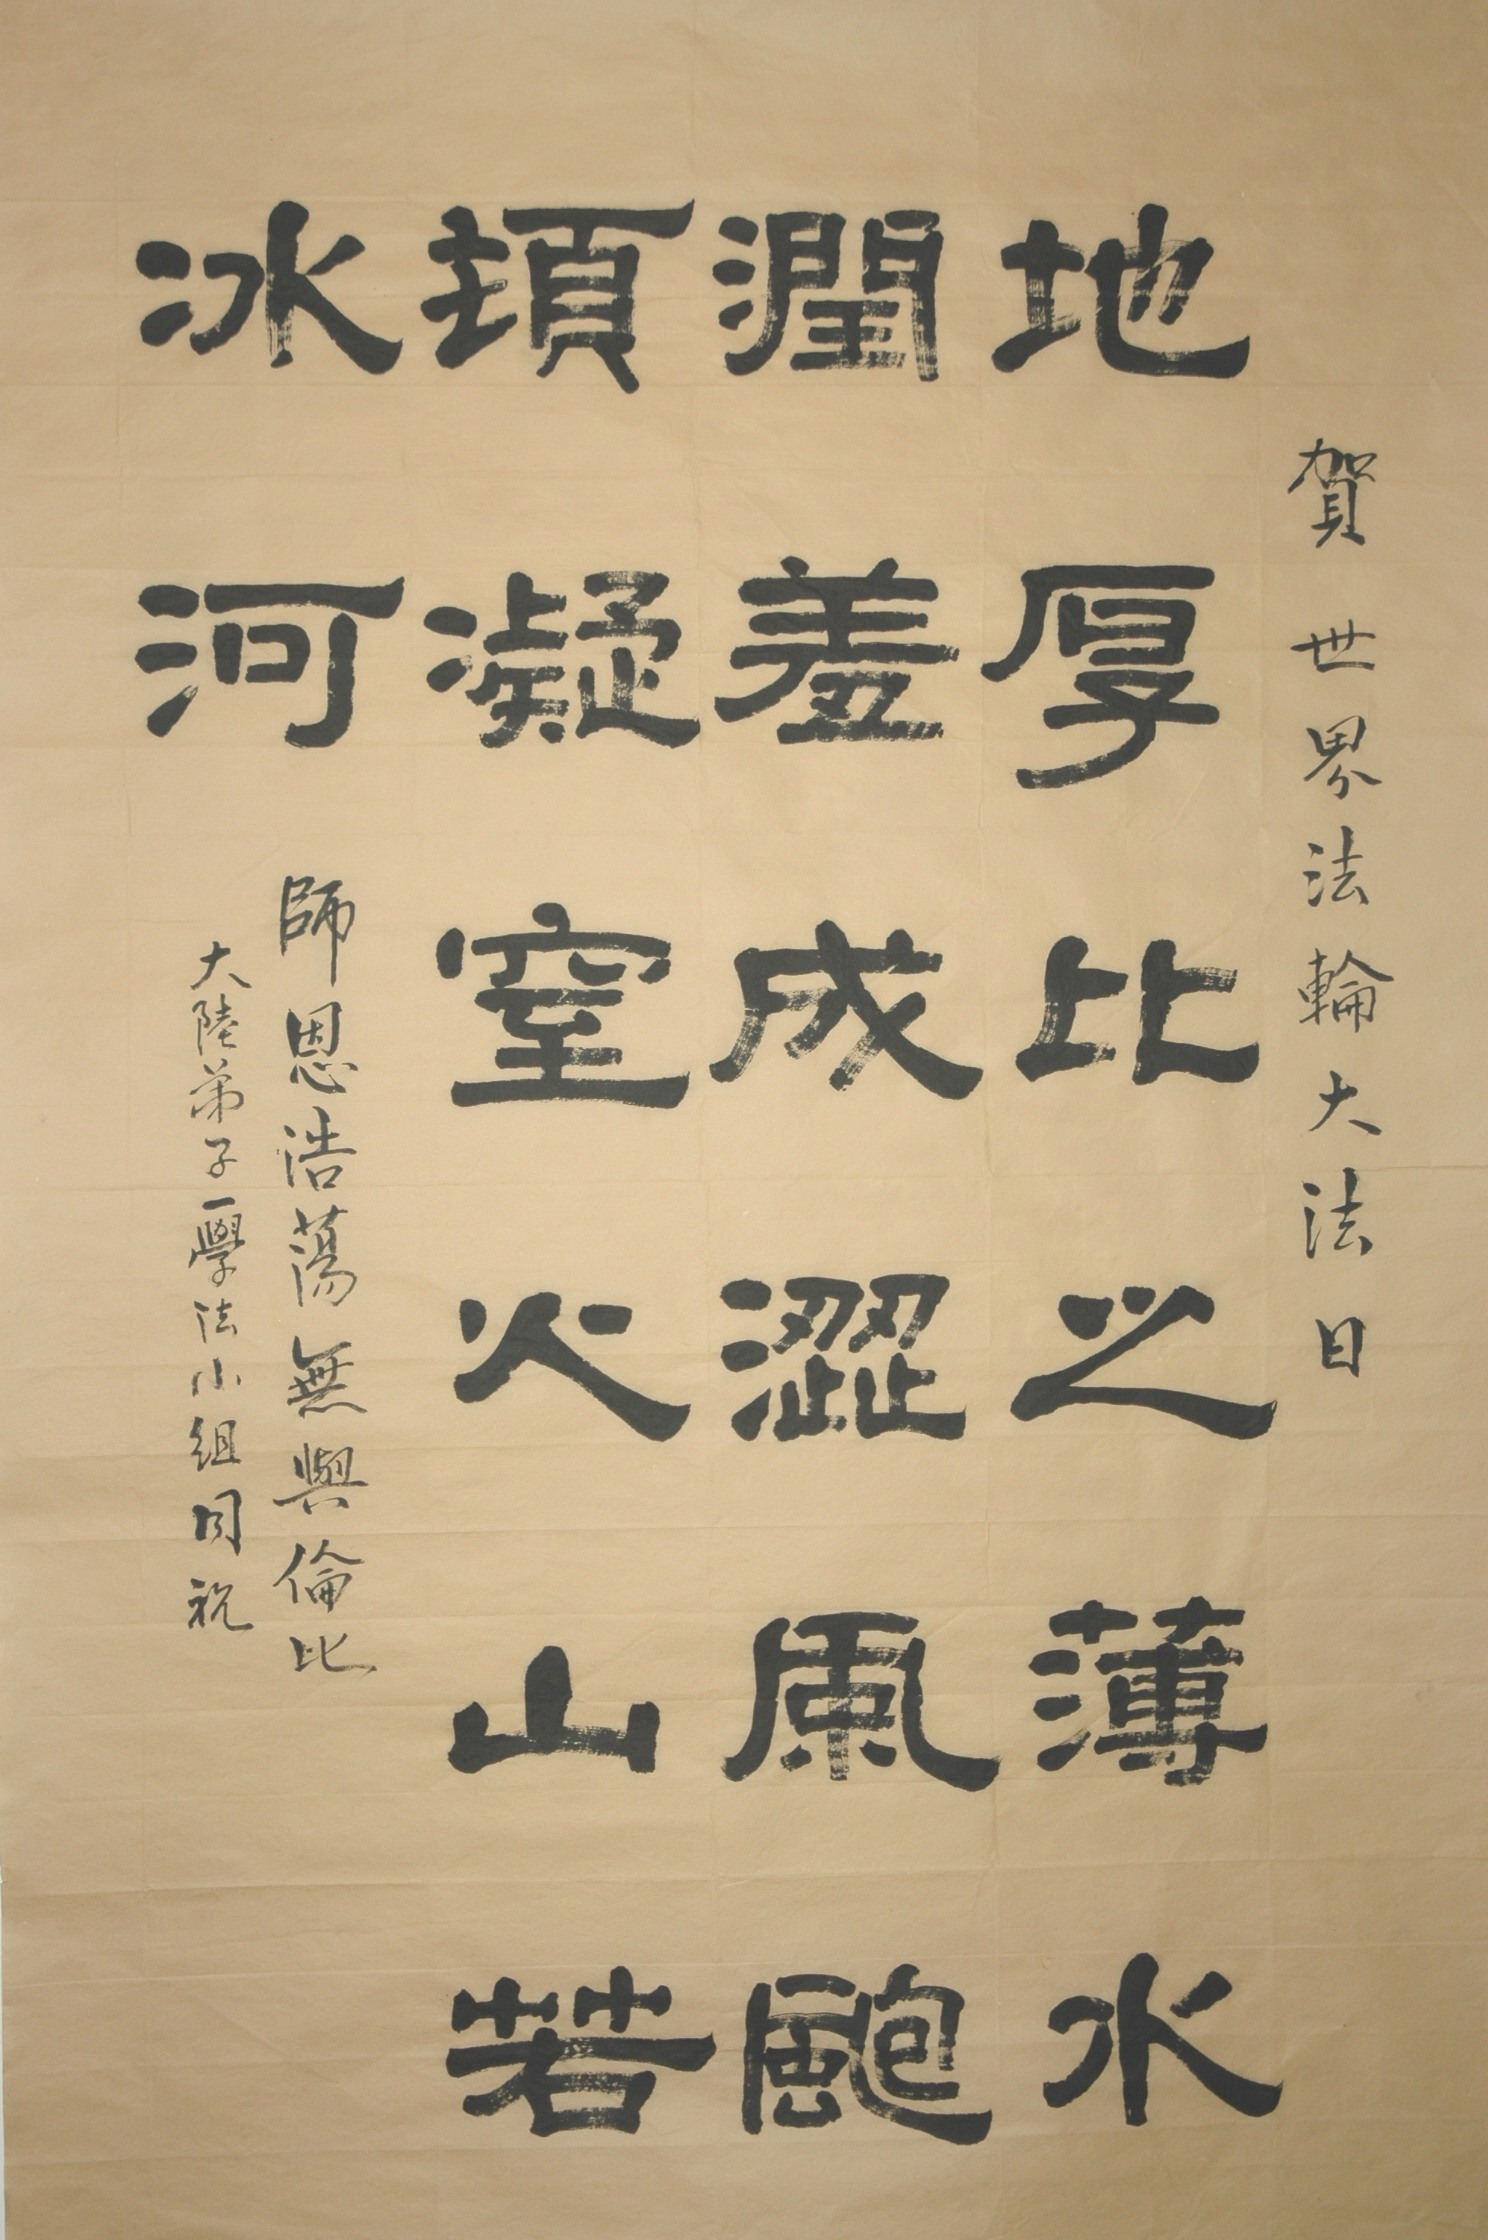 賀世界法輪大法日
地厚比之薄水
潤羞成澀風颮
頓凝窒火山若
冰河
師恩浩蕩無與倫比
大陸弟子一學法小組同祝